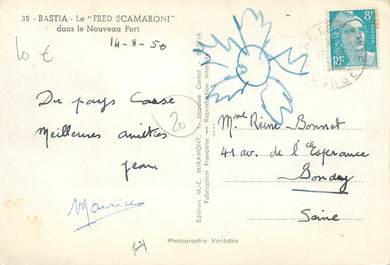 35 - BASTIA - Le "FRED SCAMARONI"
dans le Nouveau Port
14-8-50
10 €
8F
RF
Du pays Corse
Meilleures amitiés
Jean
Maurice
20
Editions M.-C. MIRAMONT,
Fabrication Française - Reproduction
Mme Reine Bonnet
41 av. de l'Espérance
Bondy
Seine
Photographie Véritable